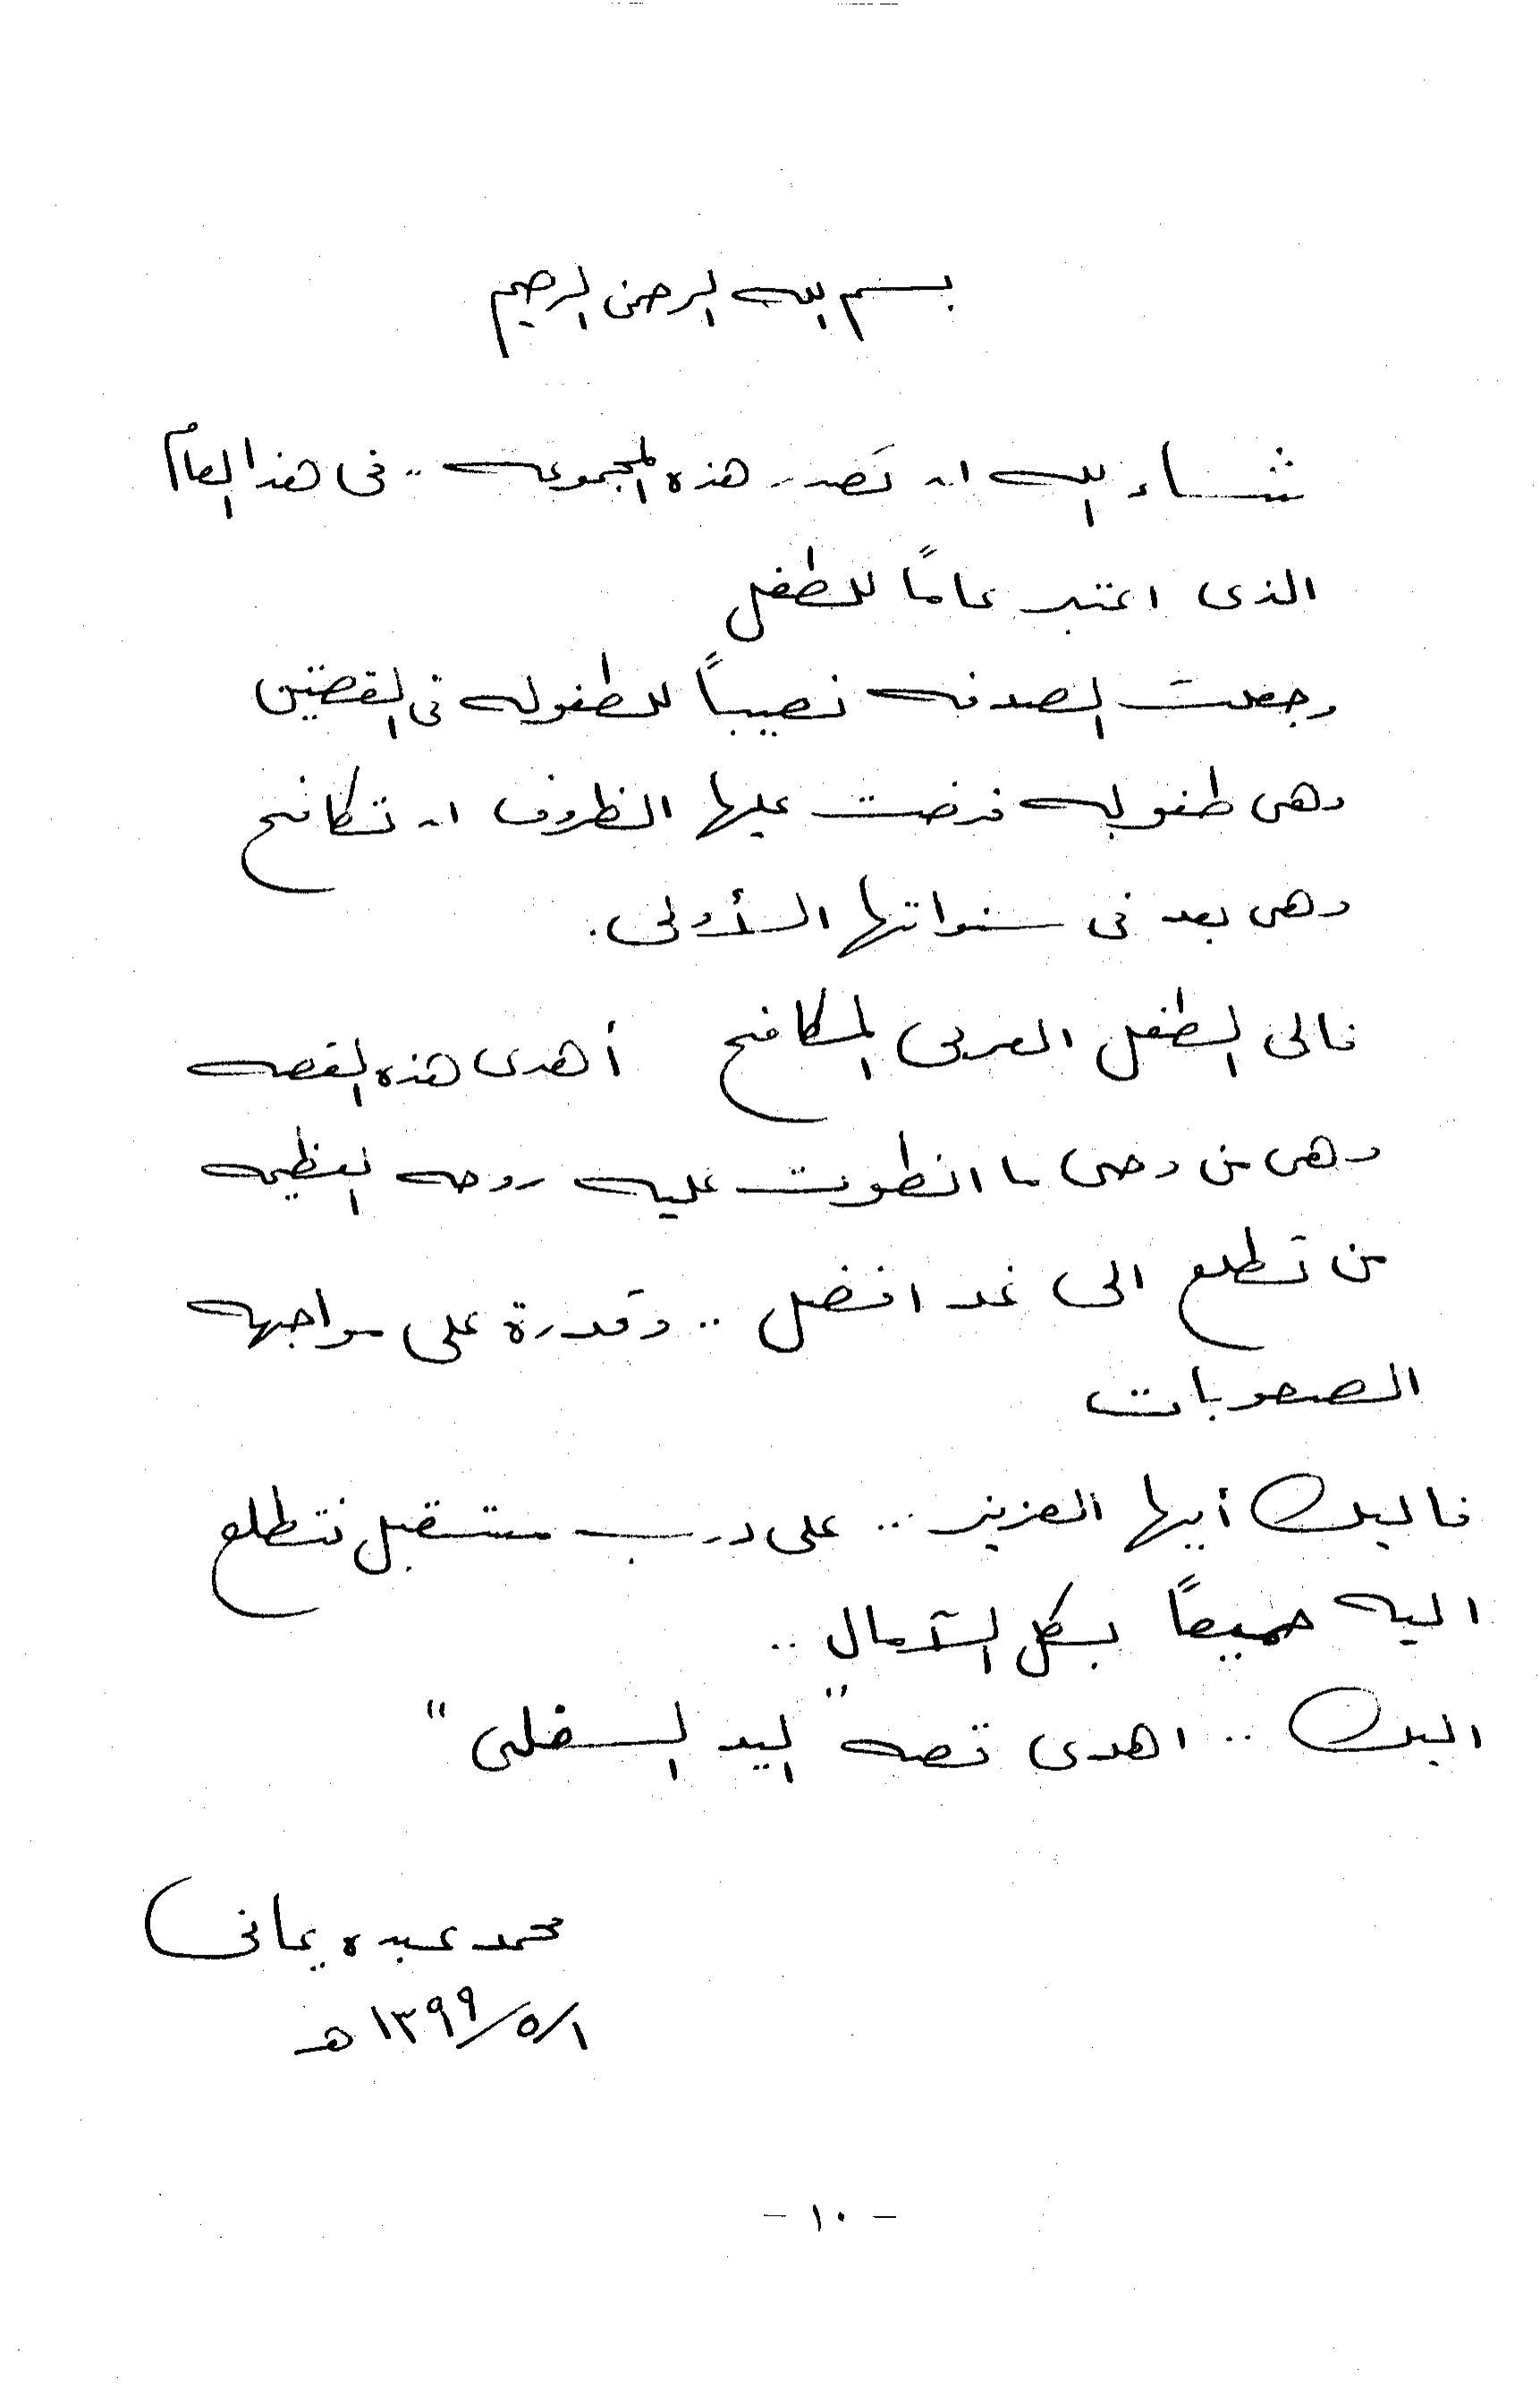 بسم الله الرحمن الرحيم
شاء الله ان تصدر هذه المجموعه .. فى هذا العام
الذى اعتبر عامًا للطفل
وجعلت الصدفه نصيباً للطفوله فى القصتين
وهى طفوله فرضت عليها الظروف ان تكافح
وهى بعد فى سنواتها الأولى .
فالى الطفل العربى المكافح أهدى هذه القصه
وهى من وحى ما انطوت عليه روحه العظيمه
من تطلع الى غد افضل .. وقدرة على مواجهه
الصعوبات
فاليك أيها العزيز ... على درب مستقبل نتطلع
اليه جميعًا بكل الآمال ..
اليك .. اهدى قصه " اليد السفلى "
محمد عبده يمانى
١/٥/١٣٩٩ هـ
- ١٠ -